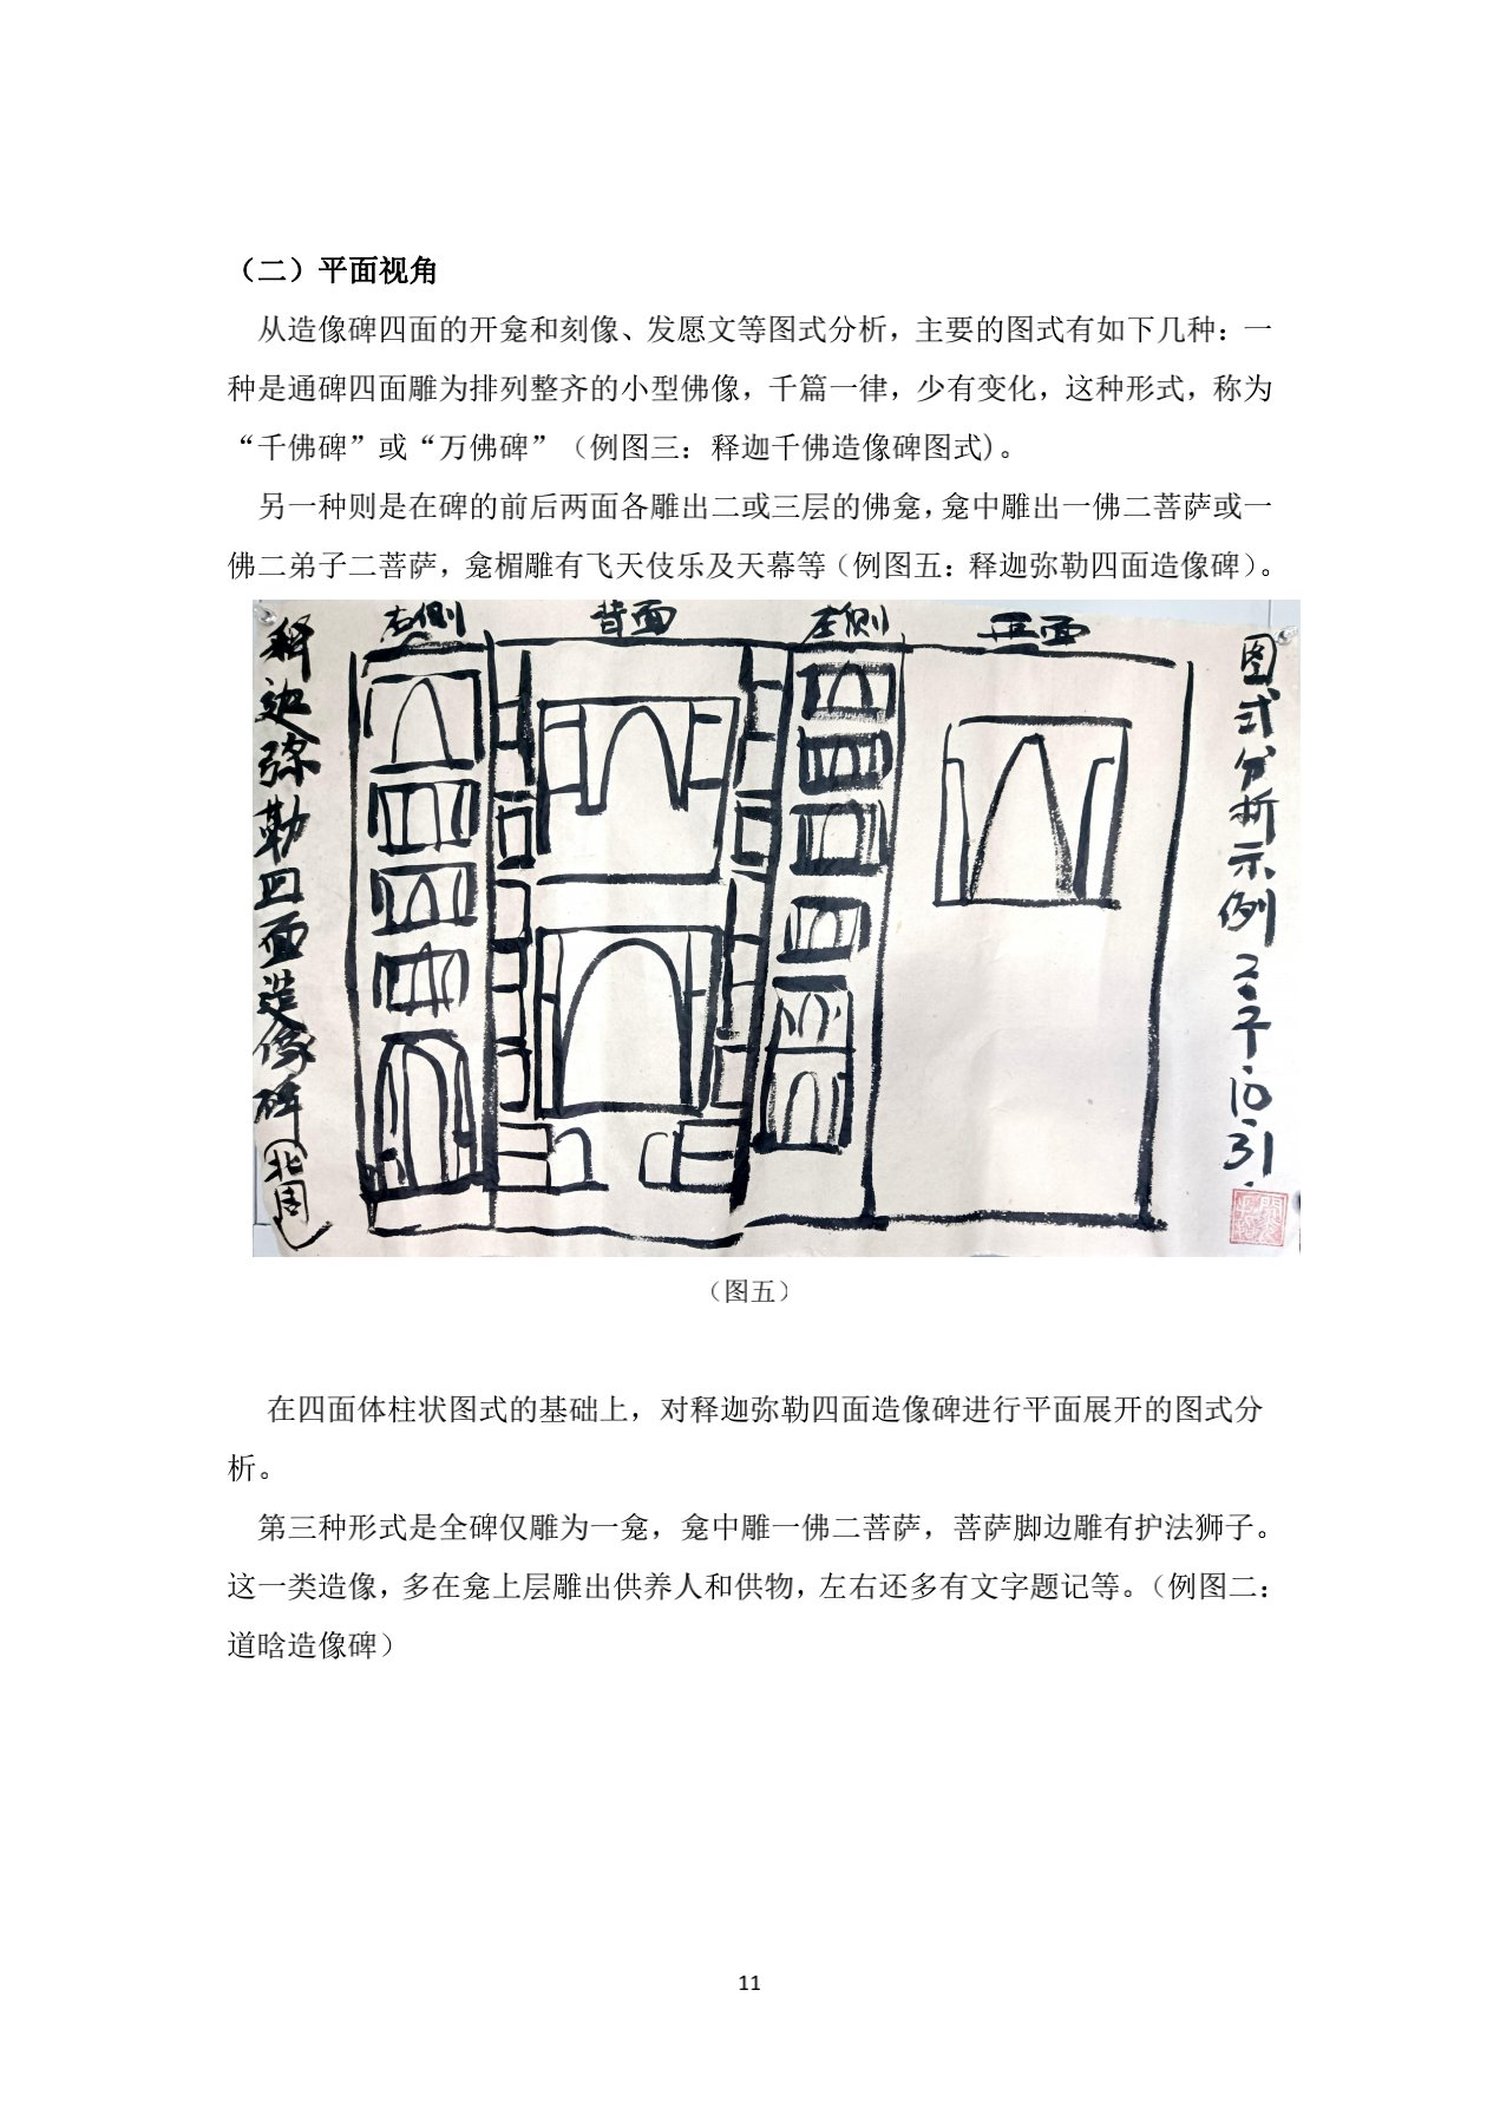 （二）平面视角
从造像碑四面的开龛和刻像、发愿文等图式分析，主要的图式有如下几种：一
种是通碑四面雕为排列整齐的小型佛像，千篇一律，少有变化，这种形式，称为
“千佛碑”或“万佛碑”（例图三：释迦千佛造像碑图式)。
另一种则是在碑的前后两面各雕出二或三层的佛龛，龛中雕出一佛二菩萨或一
佛二弟子二菩萨，龛楣雕有飞天伎乐及天幕等（例图五：释迦弥勒四面造像碑）。
释迦弥勒四面造像碑（北周）
右侧
背面
左侧
正面
图式分析示例
10.31.
（图五）
在四面体柱状图式的基础上，对释迦弥勒四面造像碑进行平面展开的图式分
析。
第三种形式是全碑仅雕为一龛，龛中雕一佛二菩萨，菩萨脚边雕有护法狮子。
这一类造像，多在龛上层雕出供养人和供物，左右还多有文字题记等。（例图二：
道晗造像碑）
11